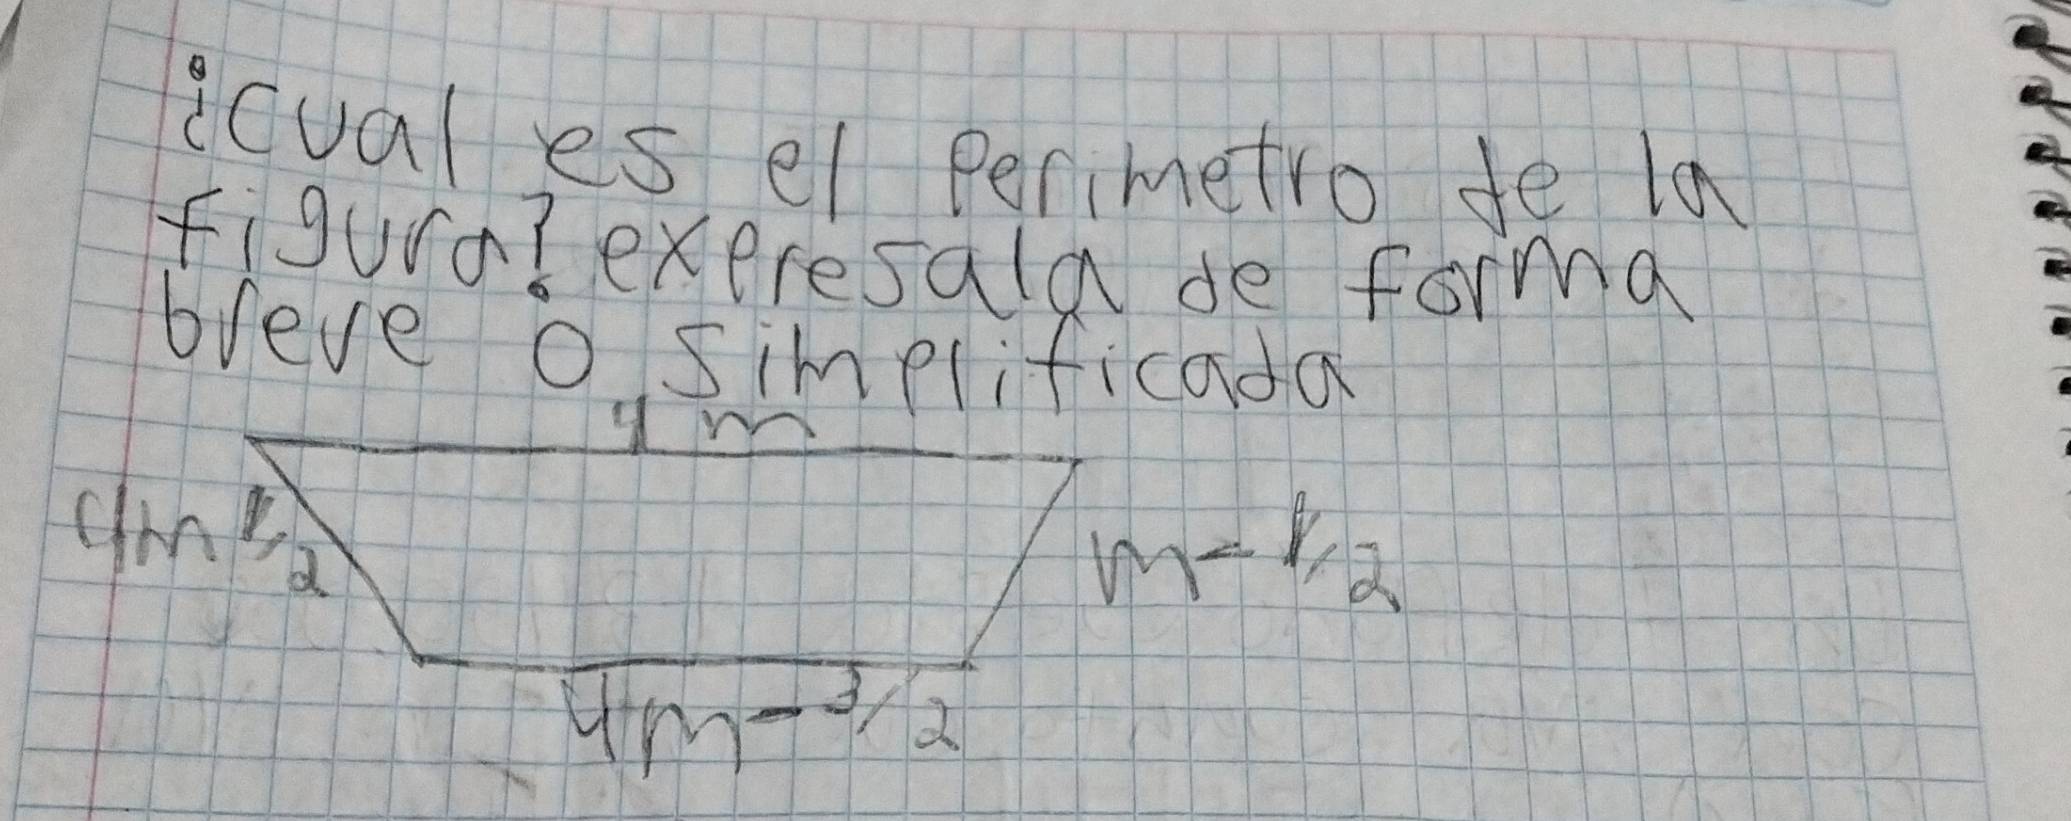 ¿cual es el perimetro de la
figura? expresala de forma
breve o simplificada
4m
4m 1/2
m-1/2
4m-3/2